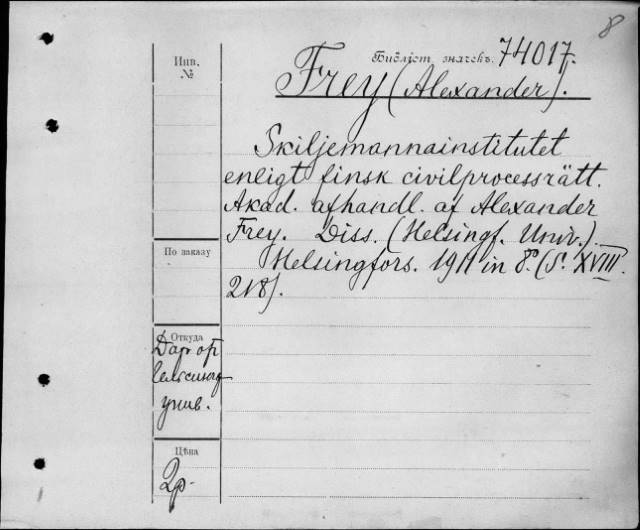 8
Инв.
№
Библіот. значекъ. 74017.
Frey (Alexander).
Skiljemannainstitutet
enligt finsk civilprocessrätt.
Akad. afhandl. af Alexander
Frey. Diss. (Helsingf. Univ.).
Helsingfors. 1911 in 8º. (S. XVIII.
218).
По заказу
Откуда
Дар от
Гельсингф
унив.
Цѣна
2р.